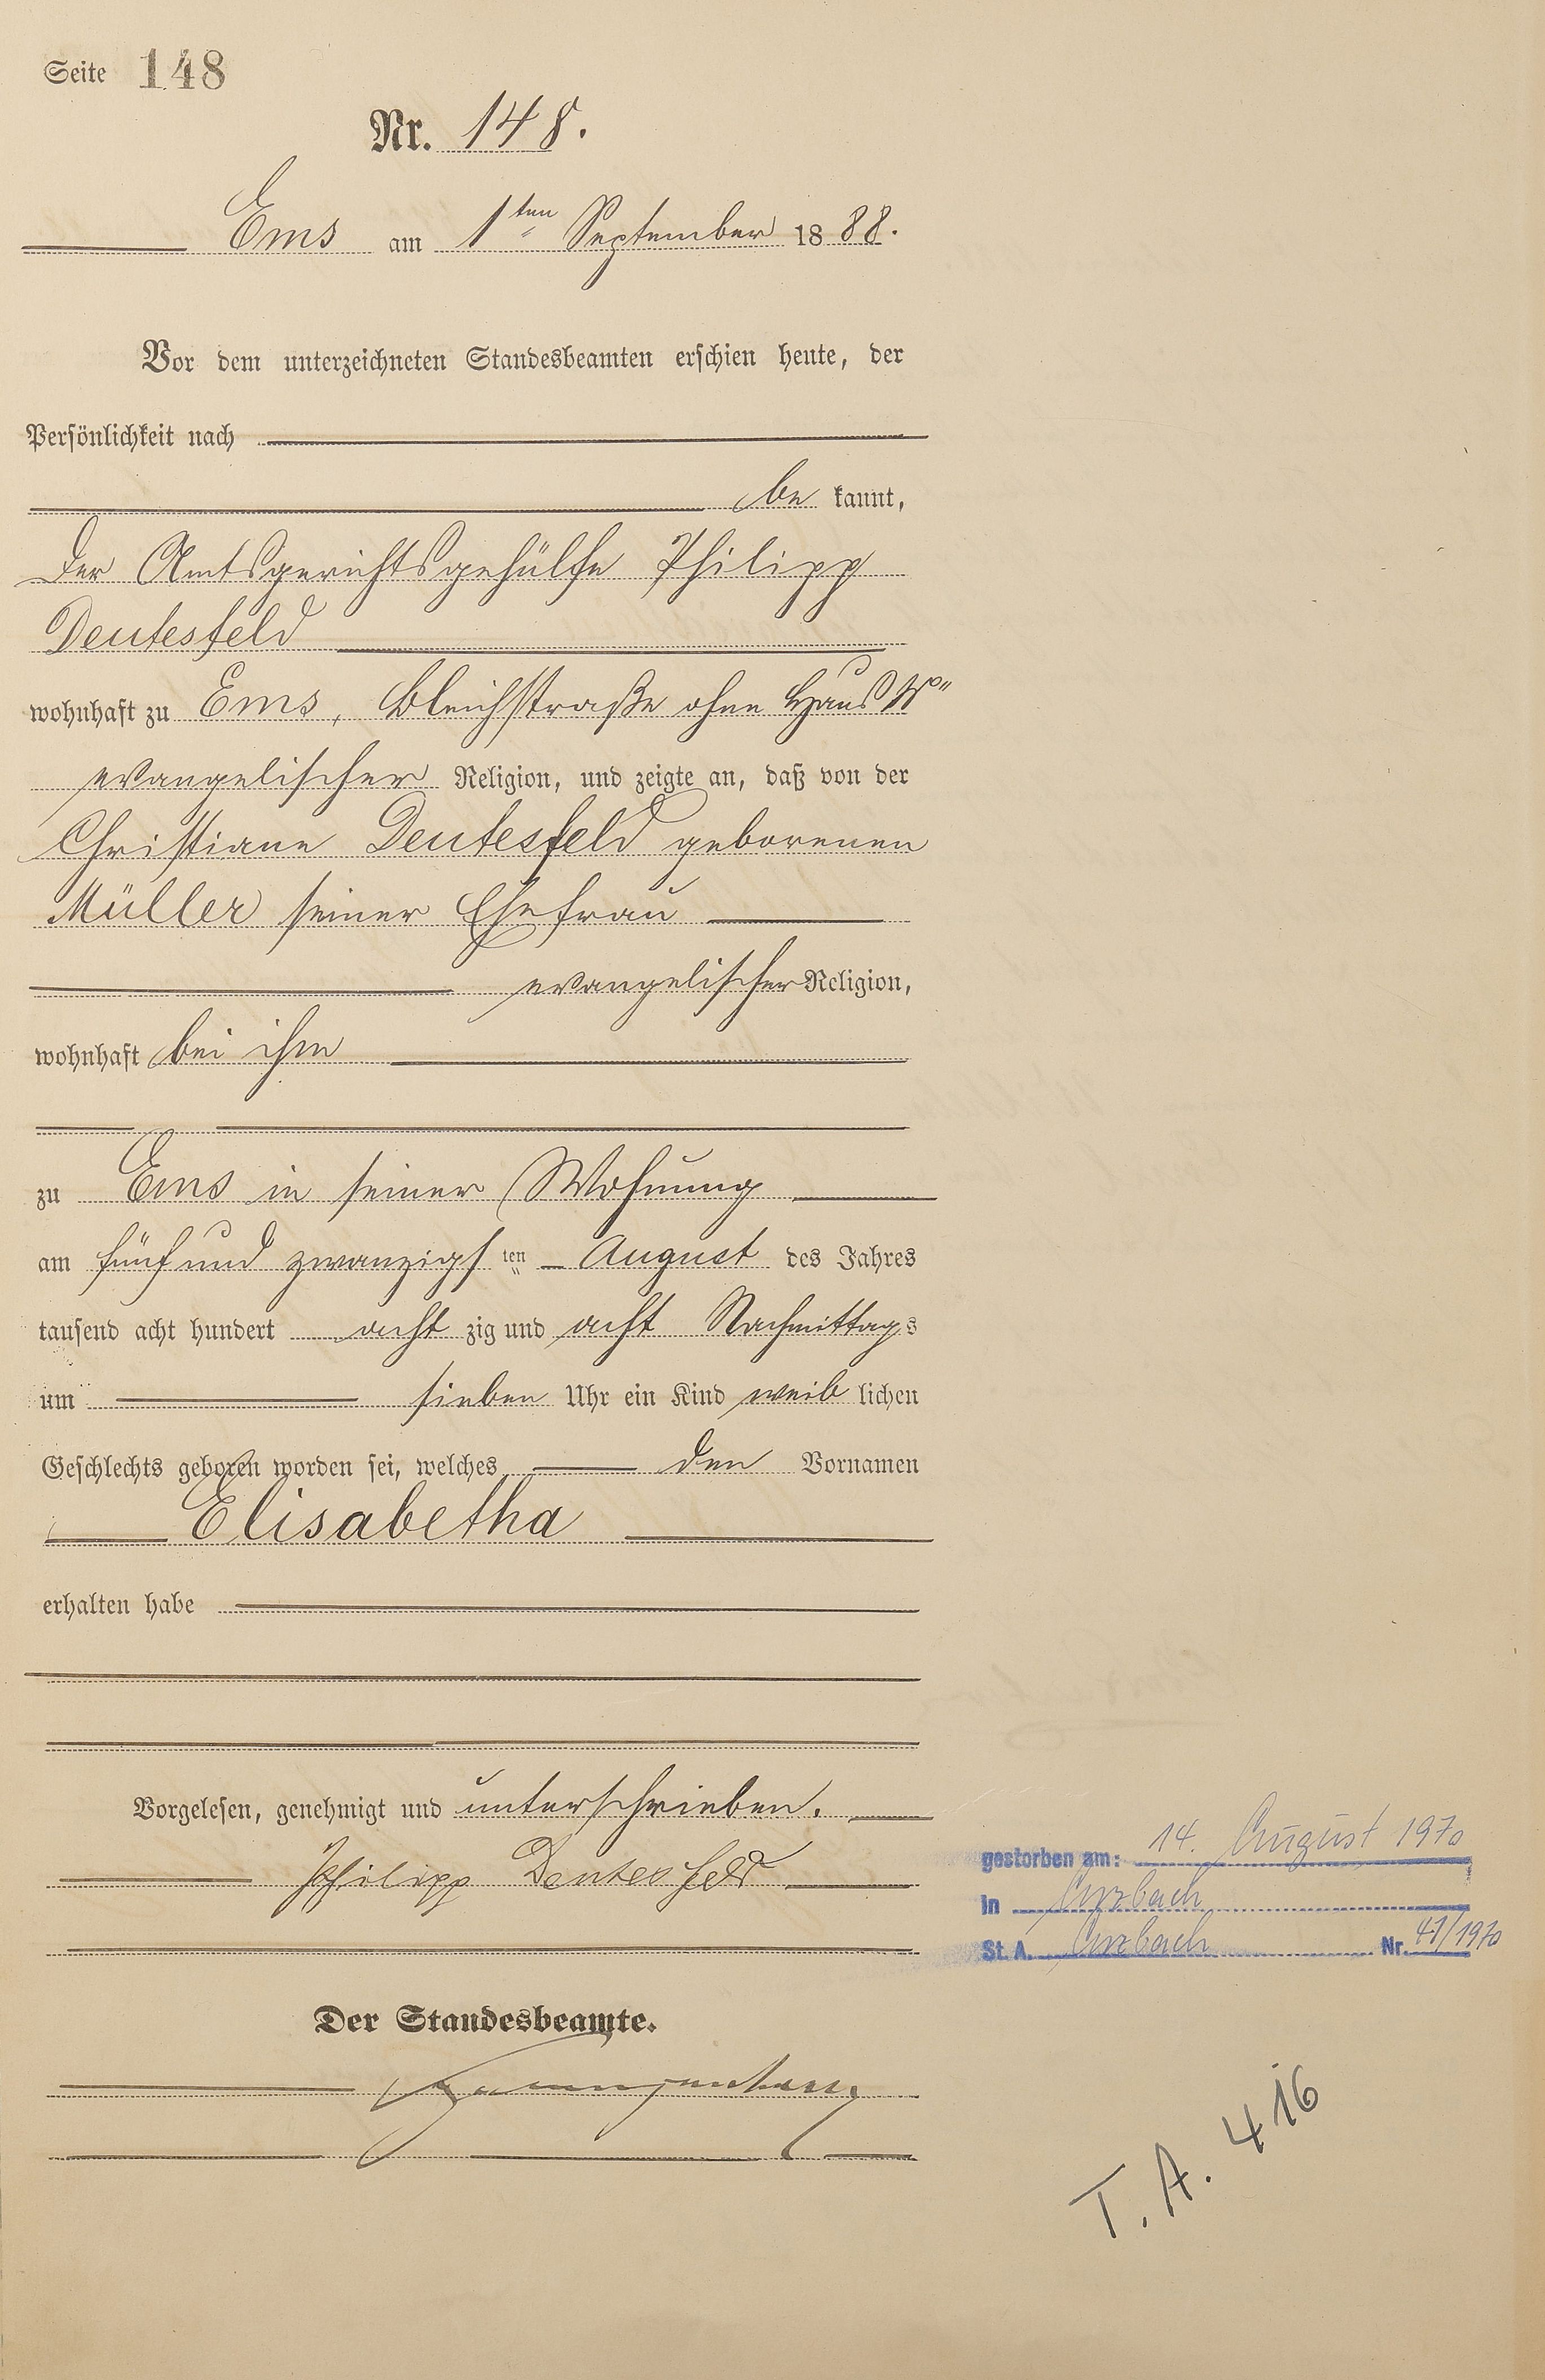 Seite 148
Nr. 148.
Ems am 1ten September 1888.
Vor dem unterzeichneten Standesbeamten erschien heute, der
Persönlichkeit nach
be kannt,
der Amtsgerichtsgehülfe Philipp
Deutesfeld
wohnhaft zu Ems, Bleichstraße ohne Haus No
evangelischer Religion, und zeigte an, daß von der
Christiane Deutesfeld geborenen
Müller seiner Ehefrau
evangelischer Religion,
wohnhaft bei ihm
zu Ems in seiner Wohnung
am fünf und zwanzigsten August des Jahres
tausend acht hundert acht zig und acht Nachmittags
um sieben Uhr ein Kind weib lichen
Geschlechts geboren worden sei, welches den Vornamen
Elisabetha
erhalten habe
Vorgelesen, genehmigt und unterschrieben.
Philipp Deutesfeld
gestorben am: 14. August 1970
in Arzbach
St. A. Arzbach Nr. 41/1970
Der Standesbeamte.
T. A. 416